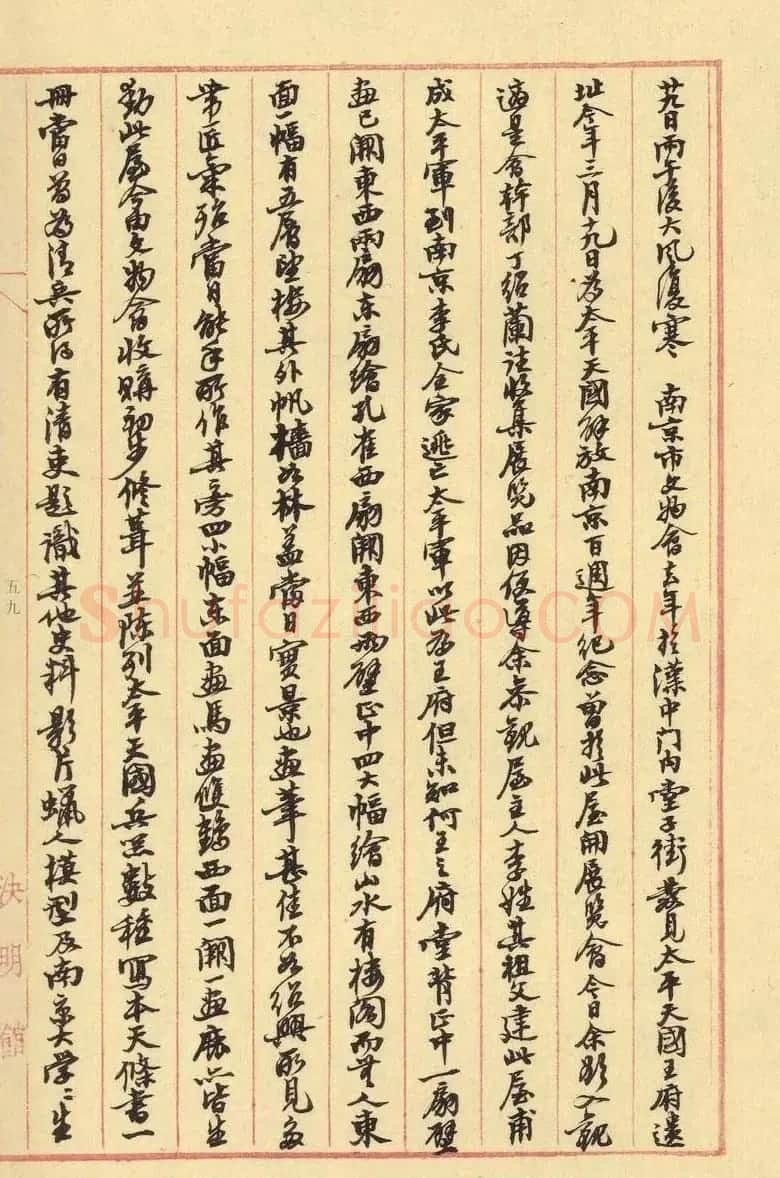 廿九日雨午後大风復寒　南京市文物會去年於漢中门内堂子街发見太平天國王府遺
址今年三月十九日为太平天國解放南京百週年纪念曾於此屋開展览會今日余欲入觀
適是會幹部丁绍蘭往收集展览品因便導余参觀屋主人李姓其祖父建此屋甫
成太平軍到南京李氏全家逃亡太平軍以此为王府但未知何王之府堂背正中一扇壁
画已闕東西兩扇东扇繪孔雀西扇闕東西两壁正中四大幅繪山水有楼阁而无人東
面一幅有五層望楼其外帆檣如林盖當日實景也画筆甚佳不如绍興所見多
带匠氣殆當日能手所作其旁四小幅东面画馬画雙鶴西面一闕一画鹿亦皆生
動此屋今由文物會收購初步修葺並陈列太平天國兵器數種寫本天條書一
冊當日曾为清兵所得有清吏题識其他史料影片蠟人模型及南京大学二生
五九
決明館
Shufaziliao.COM